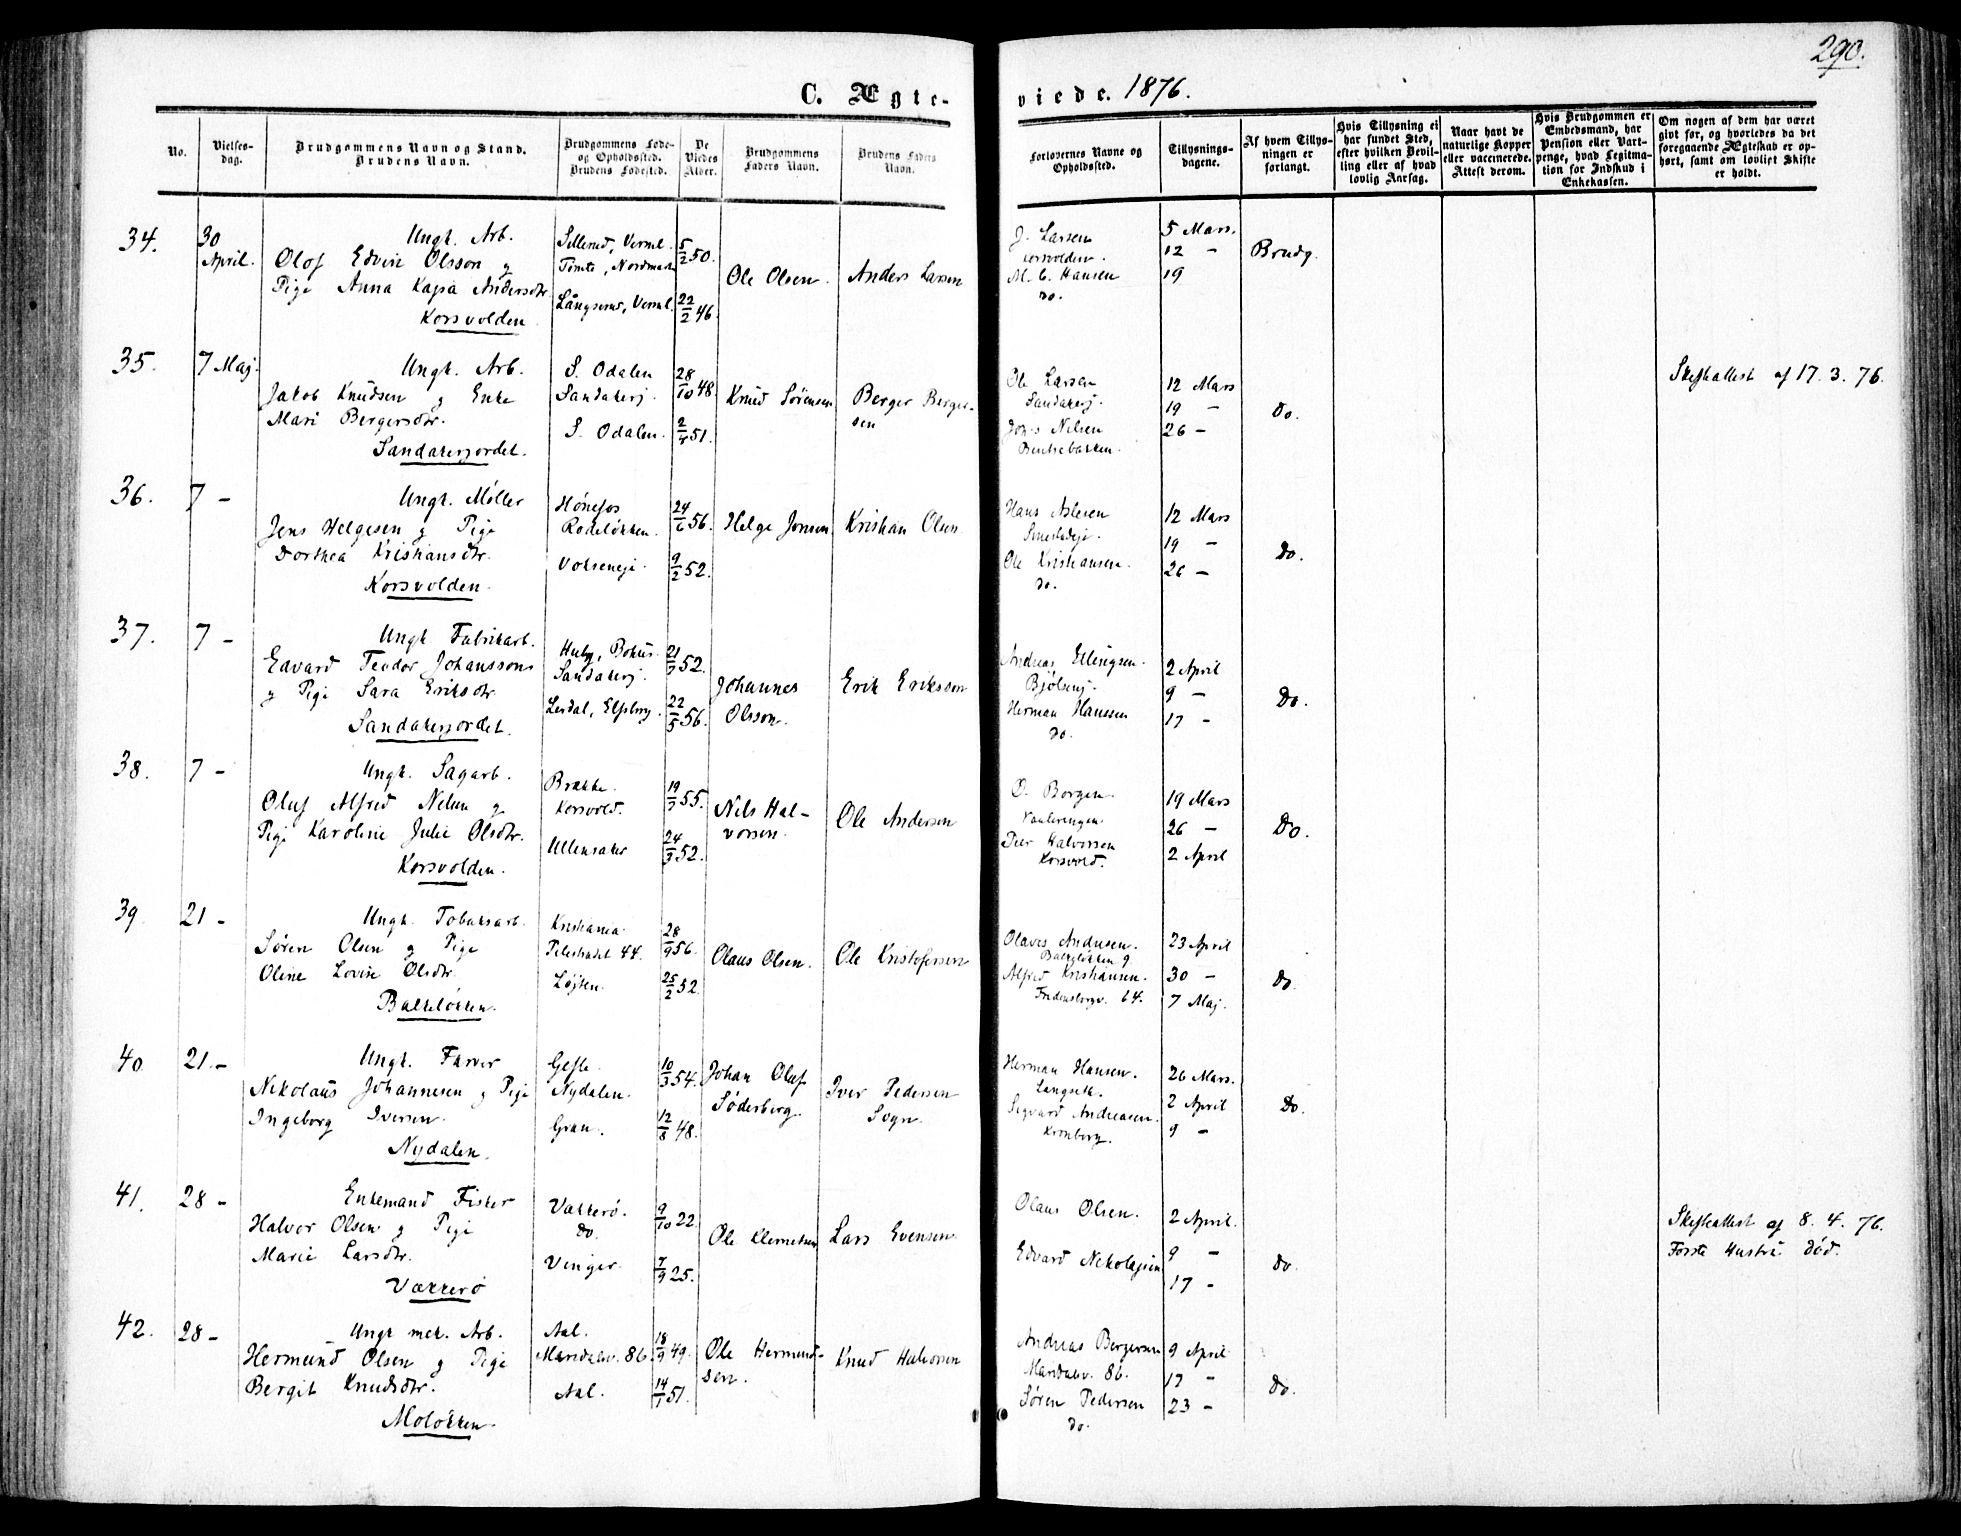 290.
C. Ægteviede. 1876.
No.
Vielsesdag.
Brudgommens Navn og Stand.
Brudens Navn.
Brudgommens Føde-
og Opholdssted.
Brudens Fødested.
De
Viedes
Alder.
Brudgommens
Faders Navn.
Brudens Faders
Navn.
Forlovernes Navne og
Opholdssted.
Tillysnings-
dagene.
Af hvem Tillys-
ningen er
forlangt.
Hvis Tillysning ei
har fundet Sted,
efter hvilken Bevil-
ling eller af hvad
lovlig Aarsag.
Naar havt de
naturlige Kopper
eller vaccinerede.
Attest derom.
Hvis Brudgommen er
Embedsmand, har
Pension eller Vart-
penge, hvad Legitima-
tion for Indskud i
Enkekassen.
Om nogen af dem har været
gift før, og hvorledes da det
foregaaende Ægteskab er op-
hørt, samt om lovligt Skifte
er holdt.
34.
30
April.
Ungk. Arb.
Olof Edvin Olsson og
Pige Anna Kajsa Andersdtr.
Korsvolden
Sillerud, Verml.
Tömte, Nordmark
Långserud, Verml.
5/2 50.
22/2 46.
Ole Olsen.
Anders Larsen
J. Larsen
Korsvolden.
M. C. Hansen
do.
5 Mars.
12 –
19
Brudg.
35.
7 Maj.
Ungk. Arb.
Jakob Knudsen og Enke
Mari Bergersdtr.
Sandakerjordet.
S. Odalen
Sandakerj.
S. Odalen.
28/10 48.
2/4 51.
Knud Sørensen
Berger Berger-
sen
Ole Larsen
Sandakerj.
Johs Nilsen
Bentsebakken.
12 Mars
19 –
26 –
Do.
Skifteattest af 17. 3. 76.
36.
7 –
Ungk. Møller
Jens Helgesen og Pige
Dorthea Kristiansdtr.
Korsvolden.
Hønefos
Rodeløkken.
Voksenejе.
24/6 56.
9/2 52.
Helge Jonsen
Kristian Olsen
Hans Aslesen
Ole Kristiansen.
do.
12 Mars
19 –
26 –
Do.
37.
7 –
Ungk Fabrikarb.
Edvard Teodor Johanssons
og Pige Sara Eriksdtr.
Sandakerjordet.
Huby, Bohus.
Sandakerj.
Lerdal, Elfsborg.
21/3 52.
22/5 56.
Johannes
Olsson.
Erik Eriksson
Andreas Ellingsen.
Bjølsenj.
Herman Hanssen
do.
2 April
9 –
17 –
Do.
38.
7 –
Ungk. Sagarb.
Oluf Alfred Nilsen og
Pige Karoline Julie Olsdtr.
Korsvolden.
Brække.
Korsvold.
Ullensaker
19/3 55.
24/3 52.
Nils Hal-
vorsen.
Ole Andersen
O. Borgen.
Vaalerengen
Peer Halvorsen
Korsvold.
19 Mars
26 –
2 April
Do.
39.
21 –
Ungk. Tobaksarb.
Søren Olsen og Pige
Oline Lovise Olsdtr.
Balkeløkken.
Kristiania.
Pilestrædet 44.
Løjten.
28/9 56.
25/2 52.
Olaus Olsen.
Ole Kristofersen
Olaves Andersen.
Balkeløkken 9.
Alfred Kristiansen.
Fredensborgv. 64.
23 April
30 –
7 Maj.
Do.
40.
21 –
Ungk. Farver
Nikolaus Johannesen og Pige
Ingeborg Iversen.
Nydalen.
Gefle.
Nydalen.
Gran.
10/3 54.
12/8 48.
Johan Oluf
Søderberg.
Iver Pedersen
Sogn.
Herman Hansen.
Langseth.
Sigvard Andreasen.
Kronborg.
26 Mars.
2 April
9 –
Do.
41.
28 –
Enkemand Fisker
Halvor Olsen og Pige
Marie Larsdtr.
Vækkerø
Vækkerø.
do.
Vinger.
9/10 22.
7/9 25.
Ole Klemetsen
Lars Evensen
Olaus Olsen.
Edvard Nikolajsen
2 April.
9 –
17 –
Do.
Skifteattest af 8. 4. 76.
Første Hustru død.
42.
28 –
Ungk mek. Arb.
Hermund Olsen og Pige
Bergit Knudsdtr.
Moløkken.
Aal.
Maridalsv. 86.
Aal.
18/9 49.
14/1 51.
Ole Hermund-
sen.
Knud Halvorsen
Andreas Bergersen
Maridalsv. 86.
Søren Pedersen
do.
9 April
17 –
23 –
Do.